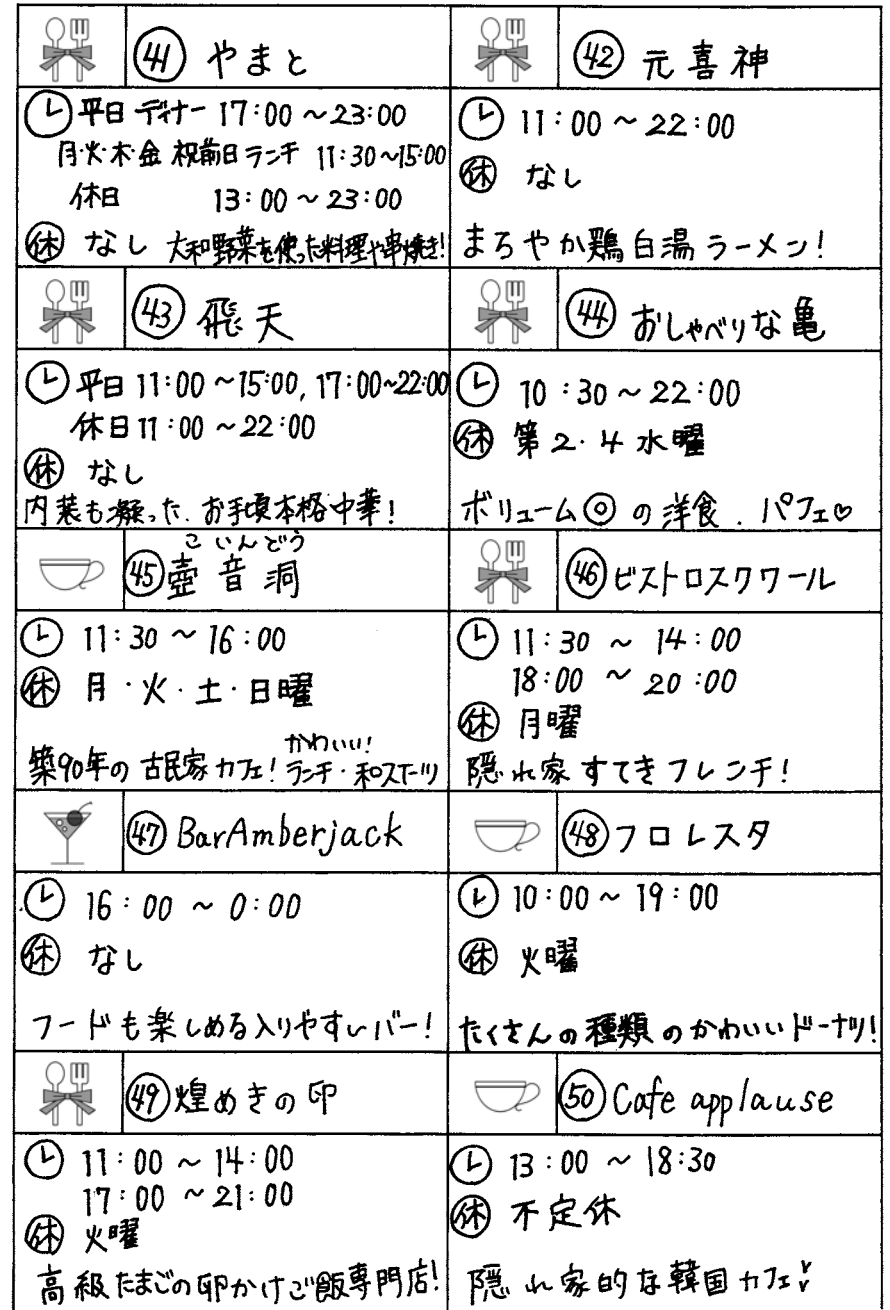 ㊶ やまと
平日 ディナー 17:00 ~ 23:00
月・火・木・金 祝前日 ランチ 11:30~15:00
休日 13:00 ~ 23:00
㊡ なし 大和野菜を使った料理や串焼き!
㊷ 元喜神
11:00 ~ 22:00
㊡ なし
まろやか鶏白湯ラーメン!
㊸ 飛天
平日 11:00 ~ 15:00, 17:00~22:00
休日 11:00 ~ 22:00
㊡ なし
内装も凝った、お手頃本格中華!
㊹ おしゃべりな亀
10:30 ~ 22:00
㊡ 第2・4 水曜
ボリューム◎の洋食、パフェ♡
こいんどう
㊺ 壺音洞
11:30 ~ 16:00
㊡ 月・火・土・日曜
かわいい!
築90年の古民家カフェ! ランチ・和スイーツ
㊻ ビストロスクワール
11:30 ~ 14:00
18:00 ~ 20:00
㊡ 月曜
隠れ家すてきフレンチ!
㊼ BarAmberjack
16:00 ~ 0:00
㊡ なし
フードも楽しめる入りやすいバー!
㊽ フロレスタ
10:00 ~ 19:00
㊡ 火曜
たくさんの種類のかわいいドーナツ!
㊾ 煌めきの卵
11:00 ~ 14:00
17:00 ~ 21:00
㊡ 火曜
高級たまごの卵かけご飯専門店!
㊿ Cafe applause
13:00 ~ 18:30
㊡ 不定休
隠れ家的な韓国カフェ